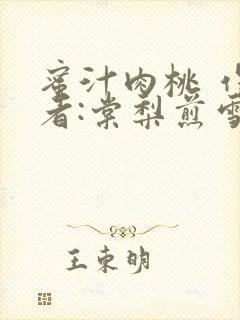 蜜汁肉桃 作
者:棠梨煎雪
王束明